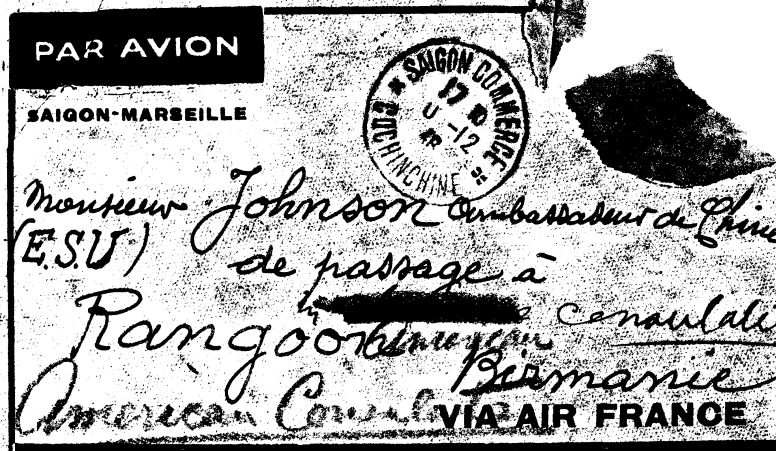 PAR AVION
SAIGON-MARSEILLE
SAIGON COMMERCE
17
-12
COCHINCHINE
Monsieur Johnson ambassadeur de Chine
(E.S.U)
de passage à
Rangoon
consulat
Birmanie
American Consulate
VIA AIR FRANCE